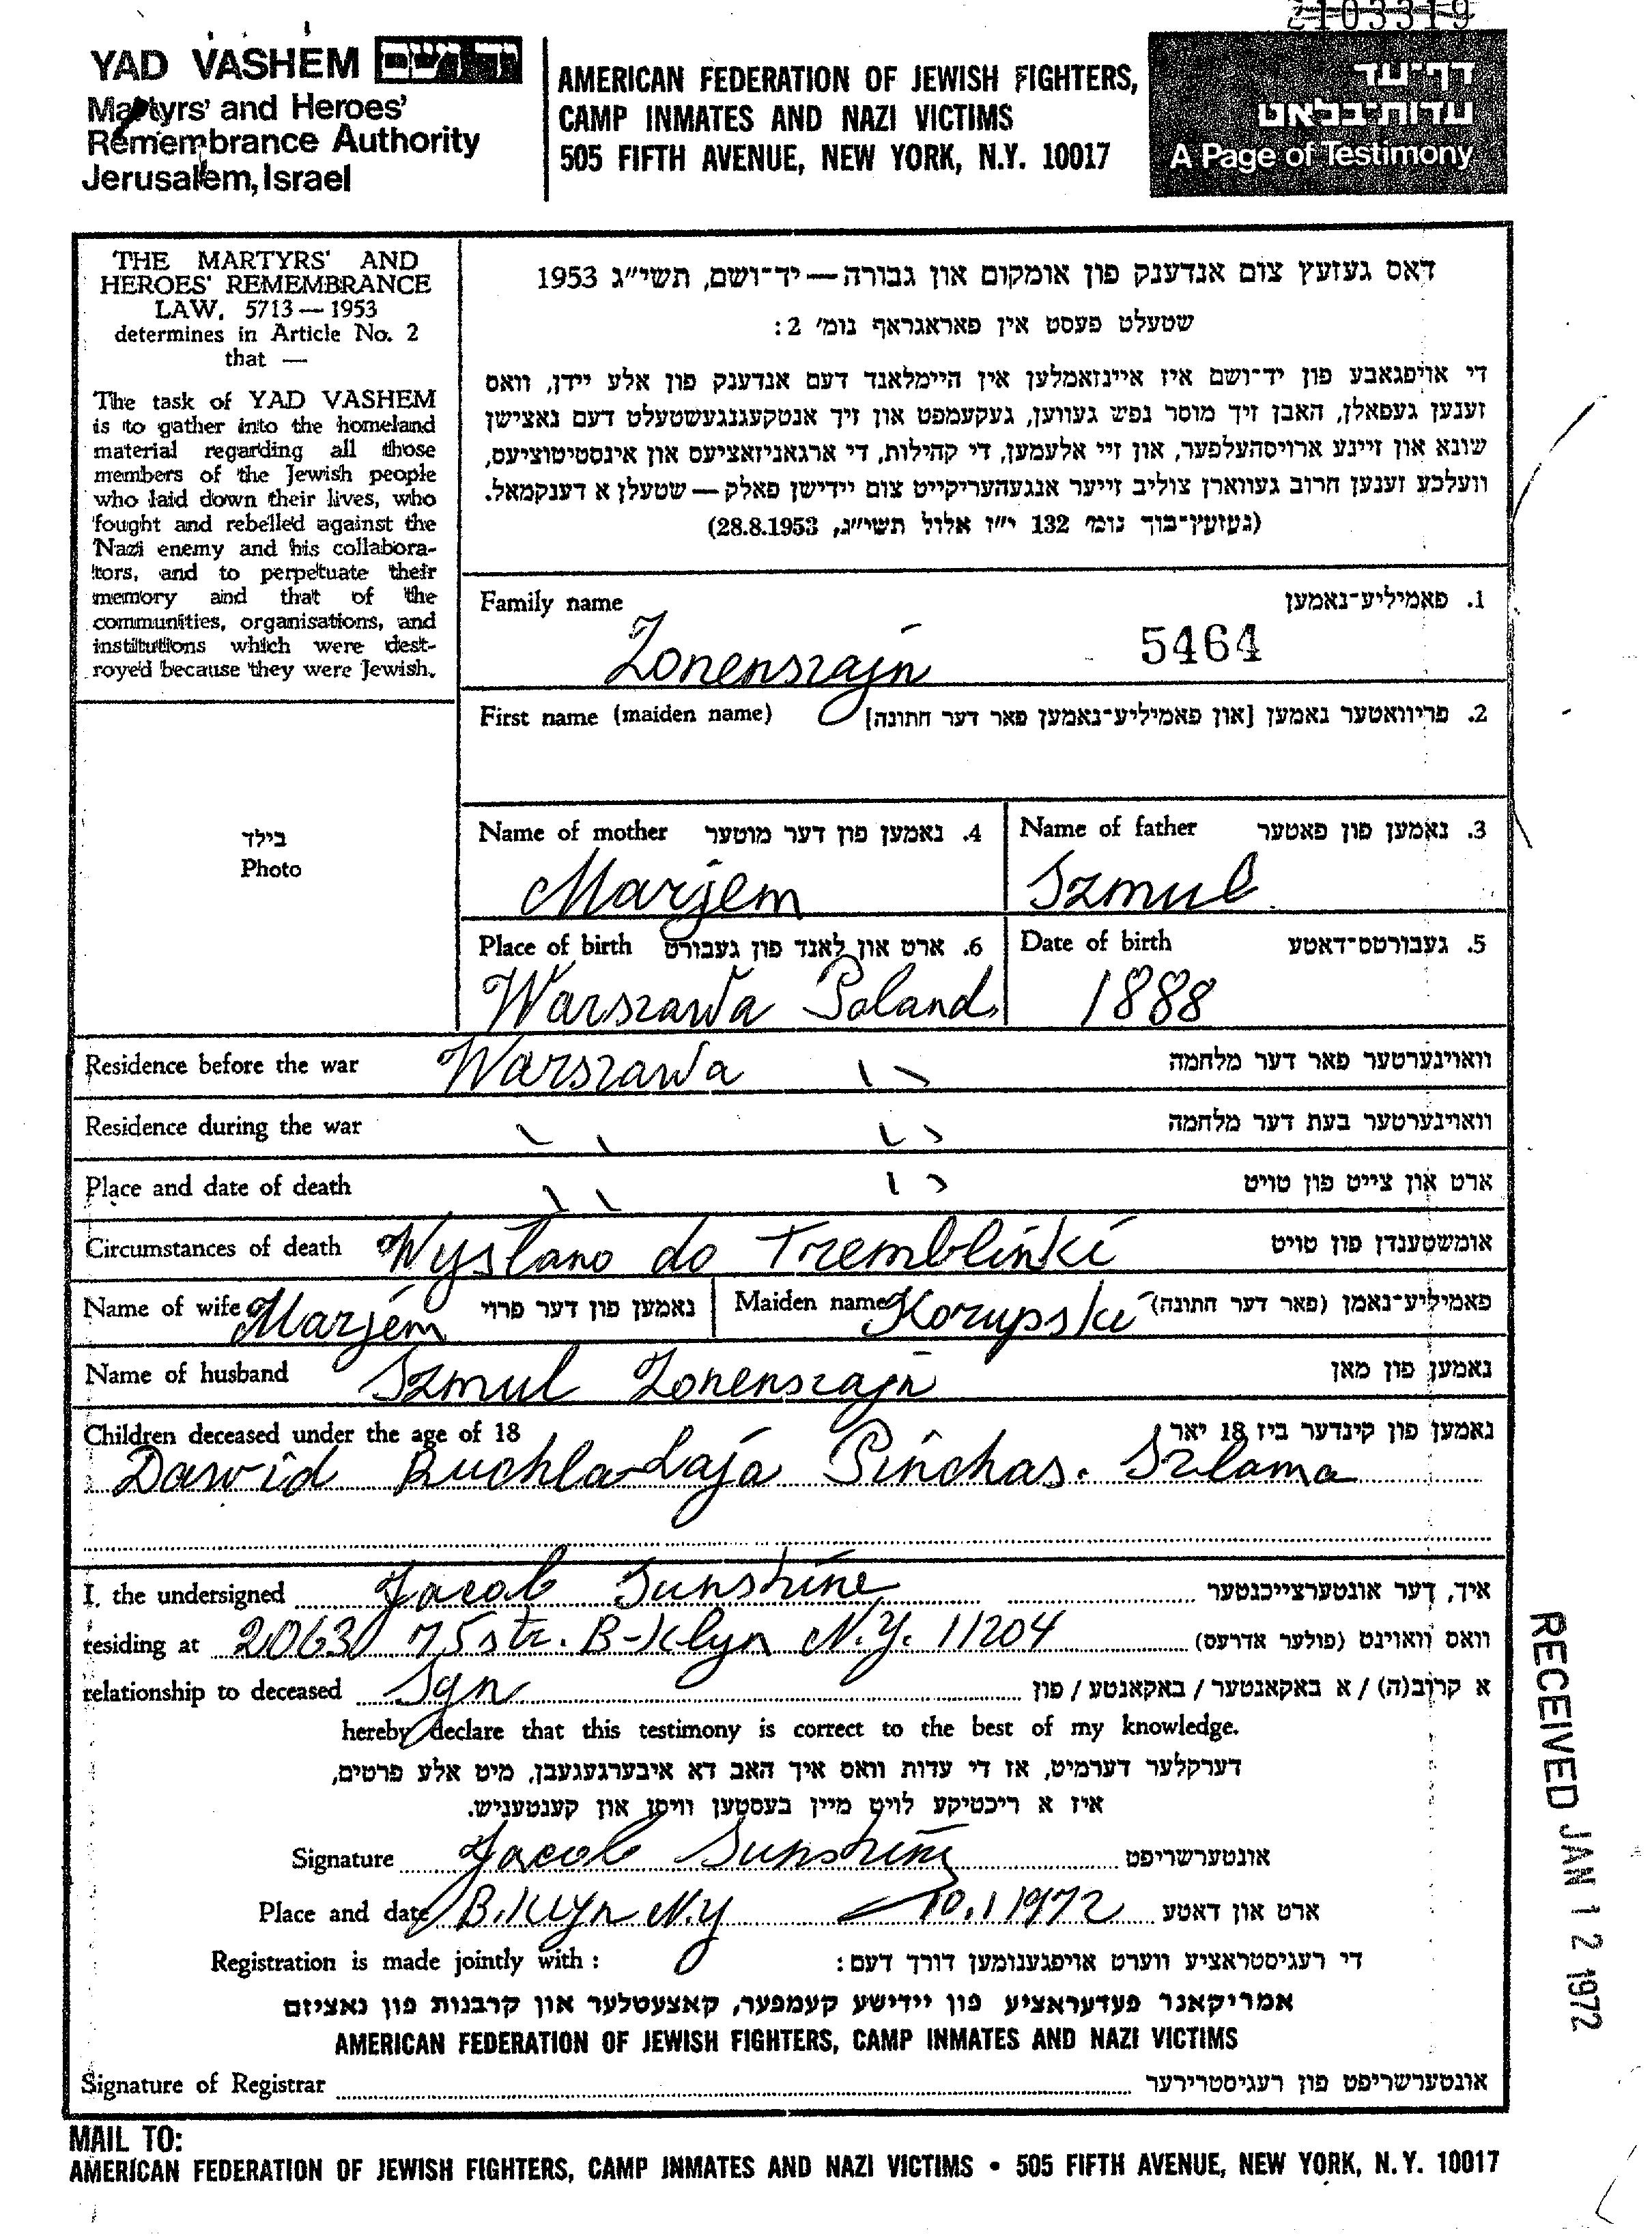 2103319
YAD VASHEM יד ושם
Martyrs' and Heroes'
Remembrance Authority
Jerusalem, Israel
AMERICAN FEDERATION OF JEWISH FIGHTERS,
CAMP INMATES AND NAZI VICTIMS
505 FIFTH AVENUE, NEW YORK, N.Y. 10017
דף־עד
עדות־בלאט
A Page of Testimony
THE MARTYRS' AND
HEROES' REMEMBRANCE
LAW, 5713 — 1953
determines in Article No. 2
that —
The task of YAD VASHEM
is to gather into the homeland
material regarding all those
members of the Jewish people
who laid down their lives, who
fought and rebelled against the
Nazi enemy and his collabora-
tors, and to perpetuate their
memory and that of the
communities, organisations, and
institutions which were dest-
royed because they were Jewish.
דאס געזעץ צום אנדענק פון אומקום און גבורה — יד־ושם, תשי"ג 1953
שטעלט פעסט אין פאראגראף נומ' 2:
די אויפגאבע פון יד־ושם איז איינזאמלען אין היימלאנד דעם אנדענק פון אלע יידן, וואס
זענען געפאלן, האבן זיך מוסר נפש געווען, געקעמפט און זיך אנטקעגנגעשטעלט דעם נאצישן
שונא און זיינע ארויסהעלפער, און זיי אלעמען, די קהילות, די ארגאניזאציעס און אינסטיטוציעס,
וועלכע זענען חרוב געווארן צוליב זייער אנגעהעריקייט צום יידישן פאלק — שטעלן א דענקמאל.
(געזעץ־בוך נומ' 132 י"ז אלול תשי"ג, 28.8.1953)
Family name 1. פאמיליע־נאמען
Zonenszajn 5464
First name (maiden name) 2. פריוואטער נאמען [און פאמיליע־נאמען פאר דער חתונה]
בילד
Photo
Name of mother 4. נאמען פון דער מוטער Name of father 3. נאמען פון פאטער
Marjem Szmul
Place of birth 6. ארט און לאנד פון געבורט Date of birth 5. געבורטס־דאטע
Warszawa Poland 1888
Residence before the war Warszawa וואוינערטער פאר דער מלחמה
Residence during the war וואוינערטער בעת דער מלחמה
Place and date of death ארט און צייט פון טויט
Circumstances of death Wyslano do Tremblinki אומשטענדן פון טויט
Name of wife Marjem נאמען פון דער פרוי Maiden name Korupski פאמיליע־נאמן (פאר דער חתונה)
Name of husband Szmul Zonenszajn נאמען פון מאן
Children deceased under the age of 18 נאמען פון קינדער ביז 18 יאר
Dawid Ruchla-Laja Pinchas. Szlama
I, the undersigned Jacob Sunshine איך, דער אונטערצייכנטער
residing at 2063 75 str. B-klyn N.Y. 11204 וואס וואוינט (פולער אדרעס)
relationship to deceased Syn א קרוב(ה) / א באקאנטער / באקאנטע / פון
hereby declare that this testimony is correct to the best of my knowledge.
דערקלער דערמיט, אז די עדות וואס איך האב דא איבערגעגעבן, מיט אלע פרטים,
איז א ריכטיקע לויט מיין בעסטען וויסן און קענטעניש.
Signature Jacob Sunshine אונטערשריפט
Place and date B.klyn N.Y 10.1 1972 ארט און דאטע
Registration is made jointly with : די רעגיסטראציע ווערט אויפגענומען דורך דעם:
אמריקאנר פעדעראציע פון יידישע קעמפער, קאצעטלער און קרבנות פון נאציזם
AMERICAN FEDERATION OF JEWISH FIGHTERS, CAMP INMATES AND NAZI VICTIMS
Signature of Registrar אונטערשריפט פון רעגיסטרירער
RECEIVED JAN 12 1972
MAIL TO:
AMERICAN FEDERATION OF JEWISH FIGHTERS, CAMP INMATES AND NAZI VICTIMS • 505 FIFTH AVENUE, NEW YORK, N.Y. 10017